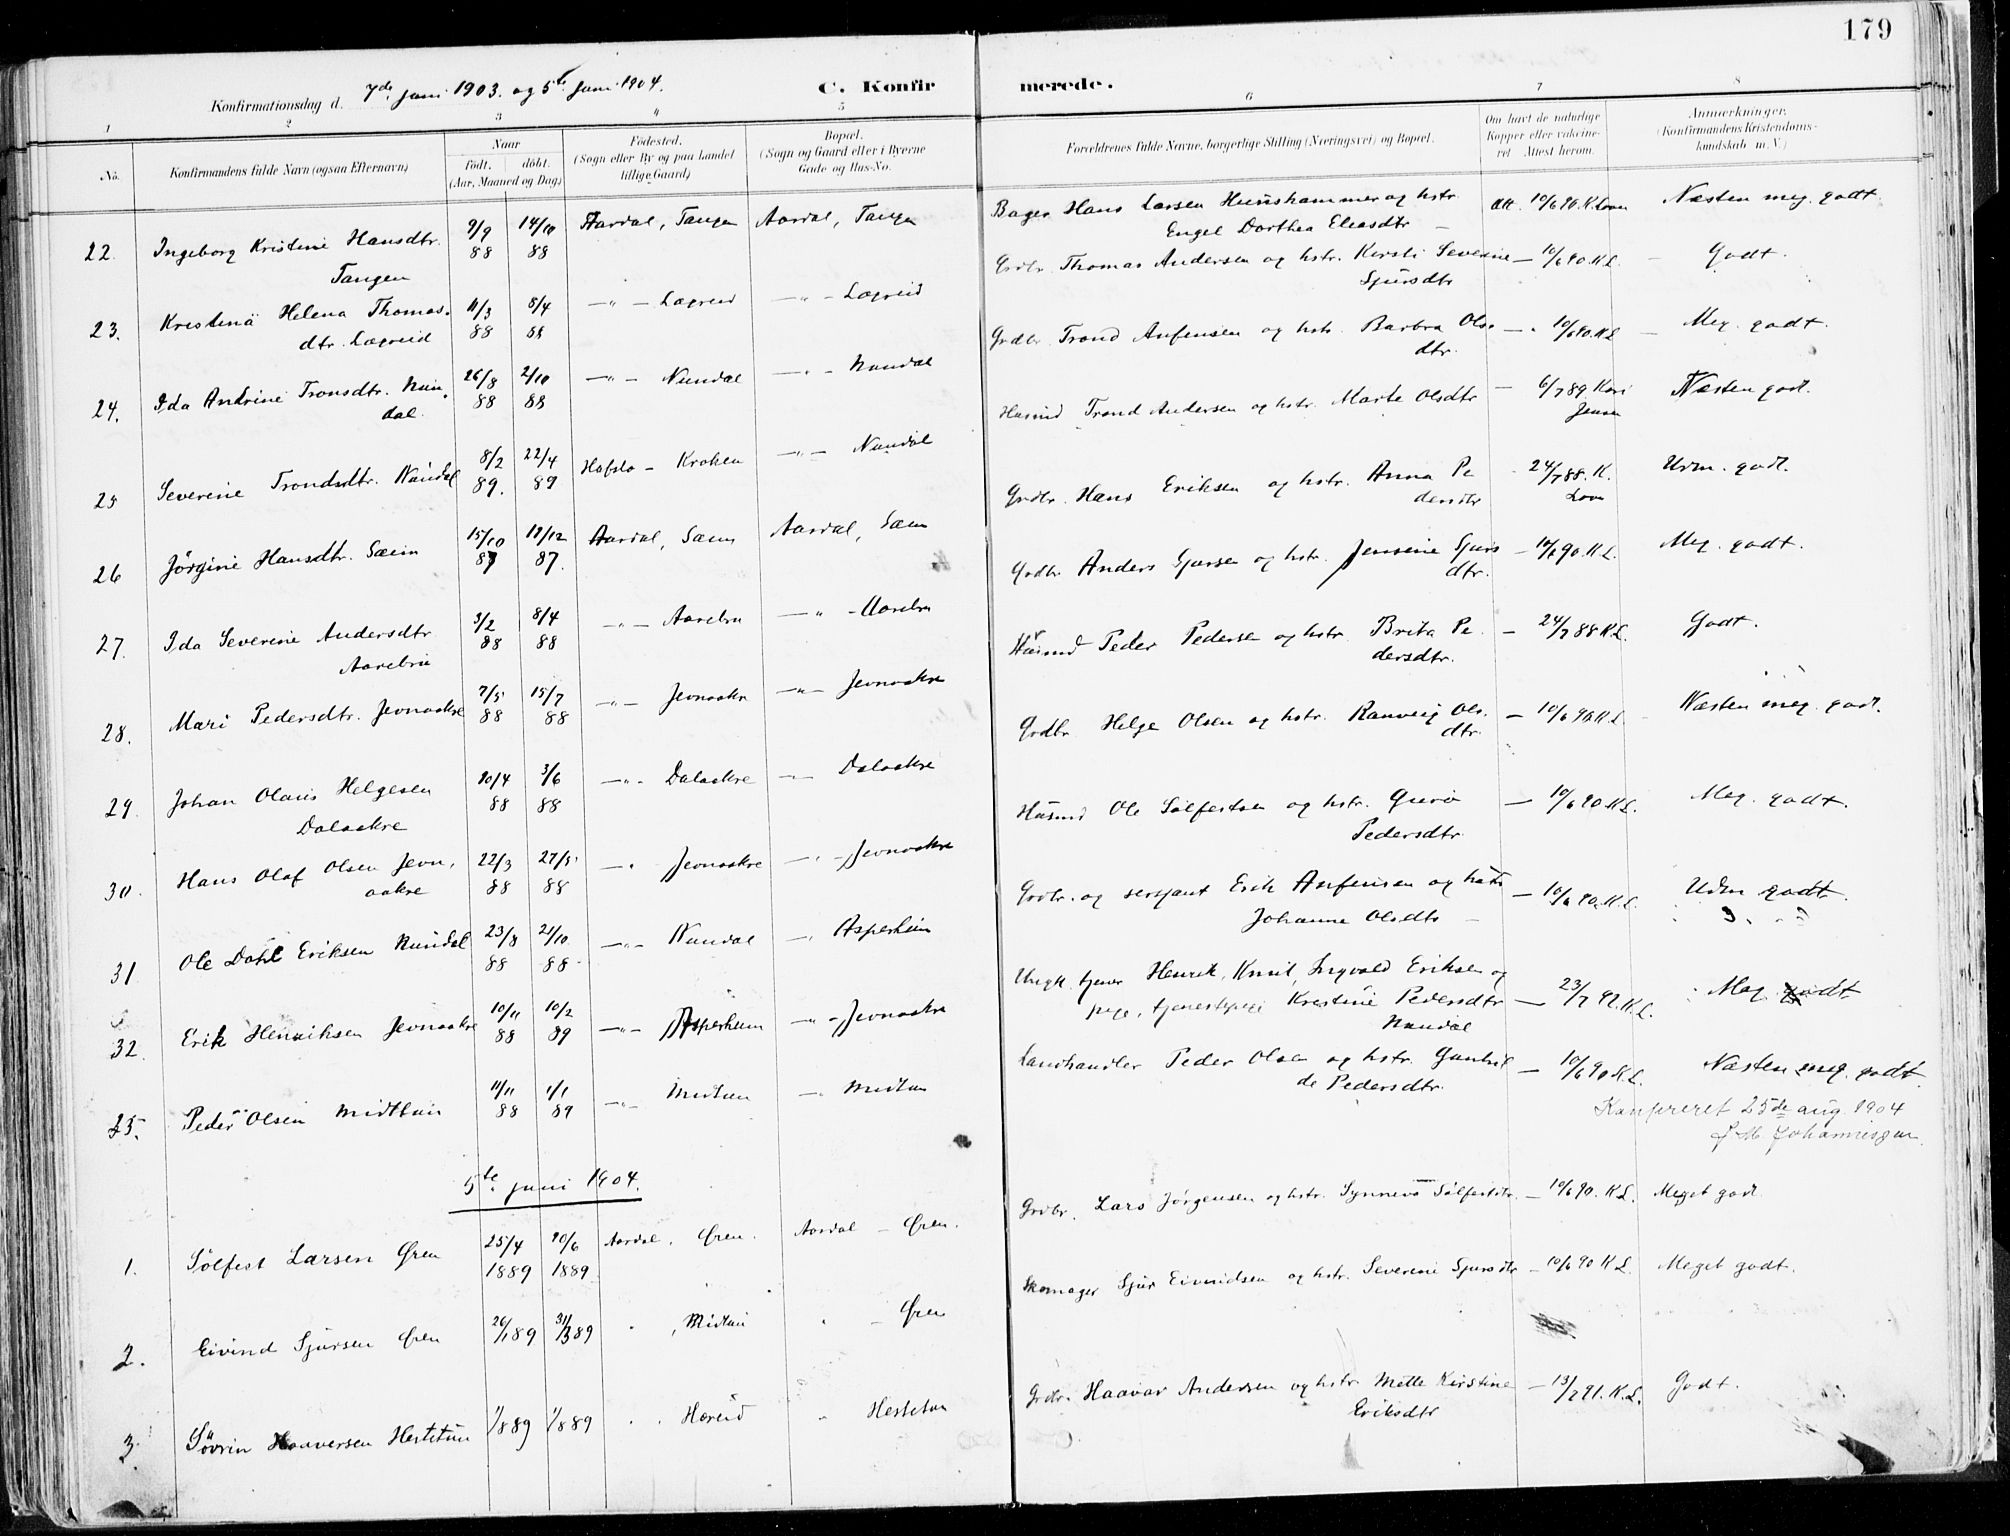 179
Konfirmationsdag d. 7de juni 1903. og 5te juni 1904.
C. Konfirmerede.
1 2 3 4 5 6 7 8
No.
Konfirmandens fulde Navn (ogsaa Efternavn)
Naar
födt. döbt.
(Aar, Maaned og Dag)
Födested.
(Sogn eller By og paa Landet
tillige Gaard)
Bopæl.
(Sogn og Gaard eller i Byerne
Gade og Hus-No.
Forældrenes fulde Navne, borgerlige Stilling (Næringsvei) og Bopæl.
Om havt de naturlige
Kopper eller vaksine-
ret Attest herom.
Anmerkninger.
(Konfirmandens Kristendoms-
kundskab m. V.)
22. Ingeborg Kristine Hansdtr. 9/9 14/10 Aardal, Tangen Aardal, Tangen Bager Hans Larsen Hunshammer og hstr. Att. 10/6 90. K. Lovn Næsten meg. godt.
Tangen 88 88 Engel Dorthea Eleasdtr
23. Kristina Helena Thomas- 11/3 8/4 —"— Lægreid —"— Lægreid Grdbr. Thomas Andersen og hstr. Kersti Severine — 10/6 90. K.L. Godt.
dtr. Lægreid 88 88 Sjursdtr
24. Ida Andrine Tronsdtr. Nun- 26/8 2/10 —"— Nundal —"— Nundal Grdbr. Trond Anfensen og hstr. Barbra Ols- — 10/6 90. K.L. Meg. godt.
dal. 88 88 dtr.
25 Severine Trondsdtr. Nundal 8/2 22/4 Hafslo - Kroken —"— Nundal Husmd Trond Andersen og hstr. Marte Olsdtr — 6/7 89. Kari Næsten godt.
89. 89 Jensen
26 Jørgine Hansdtr. Sæim 15/10 18/12 Aardal, Sæim Aardal, Sæim Grdbr. Hans Eriksen og hstr. Anna Pe 24/7 88. K. Udm. godt.
87 87. dersdtr Lovn
27. Ida Severine Andersdtr. 3/2 8/4 —"— Aarebru —"— Aarebru Grdbr Anders Sjursen og hstr. Jensine Sjurs — 10/6 90. K.L. Meg. godt.
Aarebru 88 88 dtr.
28. Mari Pedersdtr. Jevnaakre 7/5 15/7 —"— Jevnaakre —"— Jevnaakre Husmd Peder Pedersen og hstr. Brita Pe — 24/7 88 K.L. Godt.
88 88 dersdtr.
29. Johan Olaus Helgesen 20/4 3/6 —"— Dalaakre —"— Dalaakre Grdbr. Helge Olsen og hstr. Ranveig Ols. — 10/6 90. K.L. Næsten meg. godt.
Dalaakre 88 88 dtr.
30. Hans Olaf Olsen Jevn, 22/3 27/5 —"— Jevnaakre —"— Jevnaakre Husmd Ole Sølfestsen og hstr. Guro — 10/6 90. K.L. Meg. godt.
aakre 88 88 Pedersdtr.
31 Ole Dahl Eriksen Nundal 23/8 21/10 —"— Nundal —"— Asperheim Grdbr. og sersjant Erik Anfensen og hstr — 10/6 90. K.L. Udm godt.
88 88 Johanne Olsdtr
32. Erik Henriksen Jevnaakre 10/11 10/2 —"— Asperheim —"— Jevnaakre Ungk. tjener Henrik, Knut, Ingvald Eriksen og
88 89 pige, tjenestepige Kristine Pedersdtr — 23/7 92. K.L. Meg. godt
Nundal
25. Peder Olsen Midttun 11/11 1/1 —"— Midtun —"— Midtun Landhandler Peder Olsen og hstr. Gunhil — 10/6 90. K.L. Næsten meg. godt.
88 89 de Pedersdtr.
Konfereret 25de aug. 1904
J. M. Johannessen
5te juni 1904.
1. Sølfest Larsen Øren 25/4 10/6 Aardal, Øren. Aardal - Øren. Grdbr. Lars Jørgensen og hstr. Synneva Sølfestdtr. — 10/6 90. K.L. Meget godt.
1889 1889
2. Eivind Sjursen Øren 26/1 89 31/3 89 " , Midtun " — Øren Skomager Sjur Eivindsen og hstr. Severine Sjursdtr — 10/6 90 K.L. Meget godt.
3. Søvrin Haaversen Hestetun 1/8 89 1/8 89 " " Hæreid " Hestetun Grdbr. Haavar Andersen og hstr. Mette Kirstine — 13/7 91. K.L. Godt.
Eriksdtr